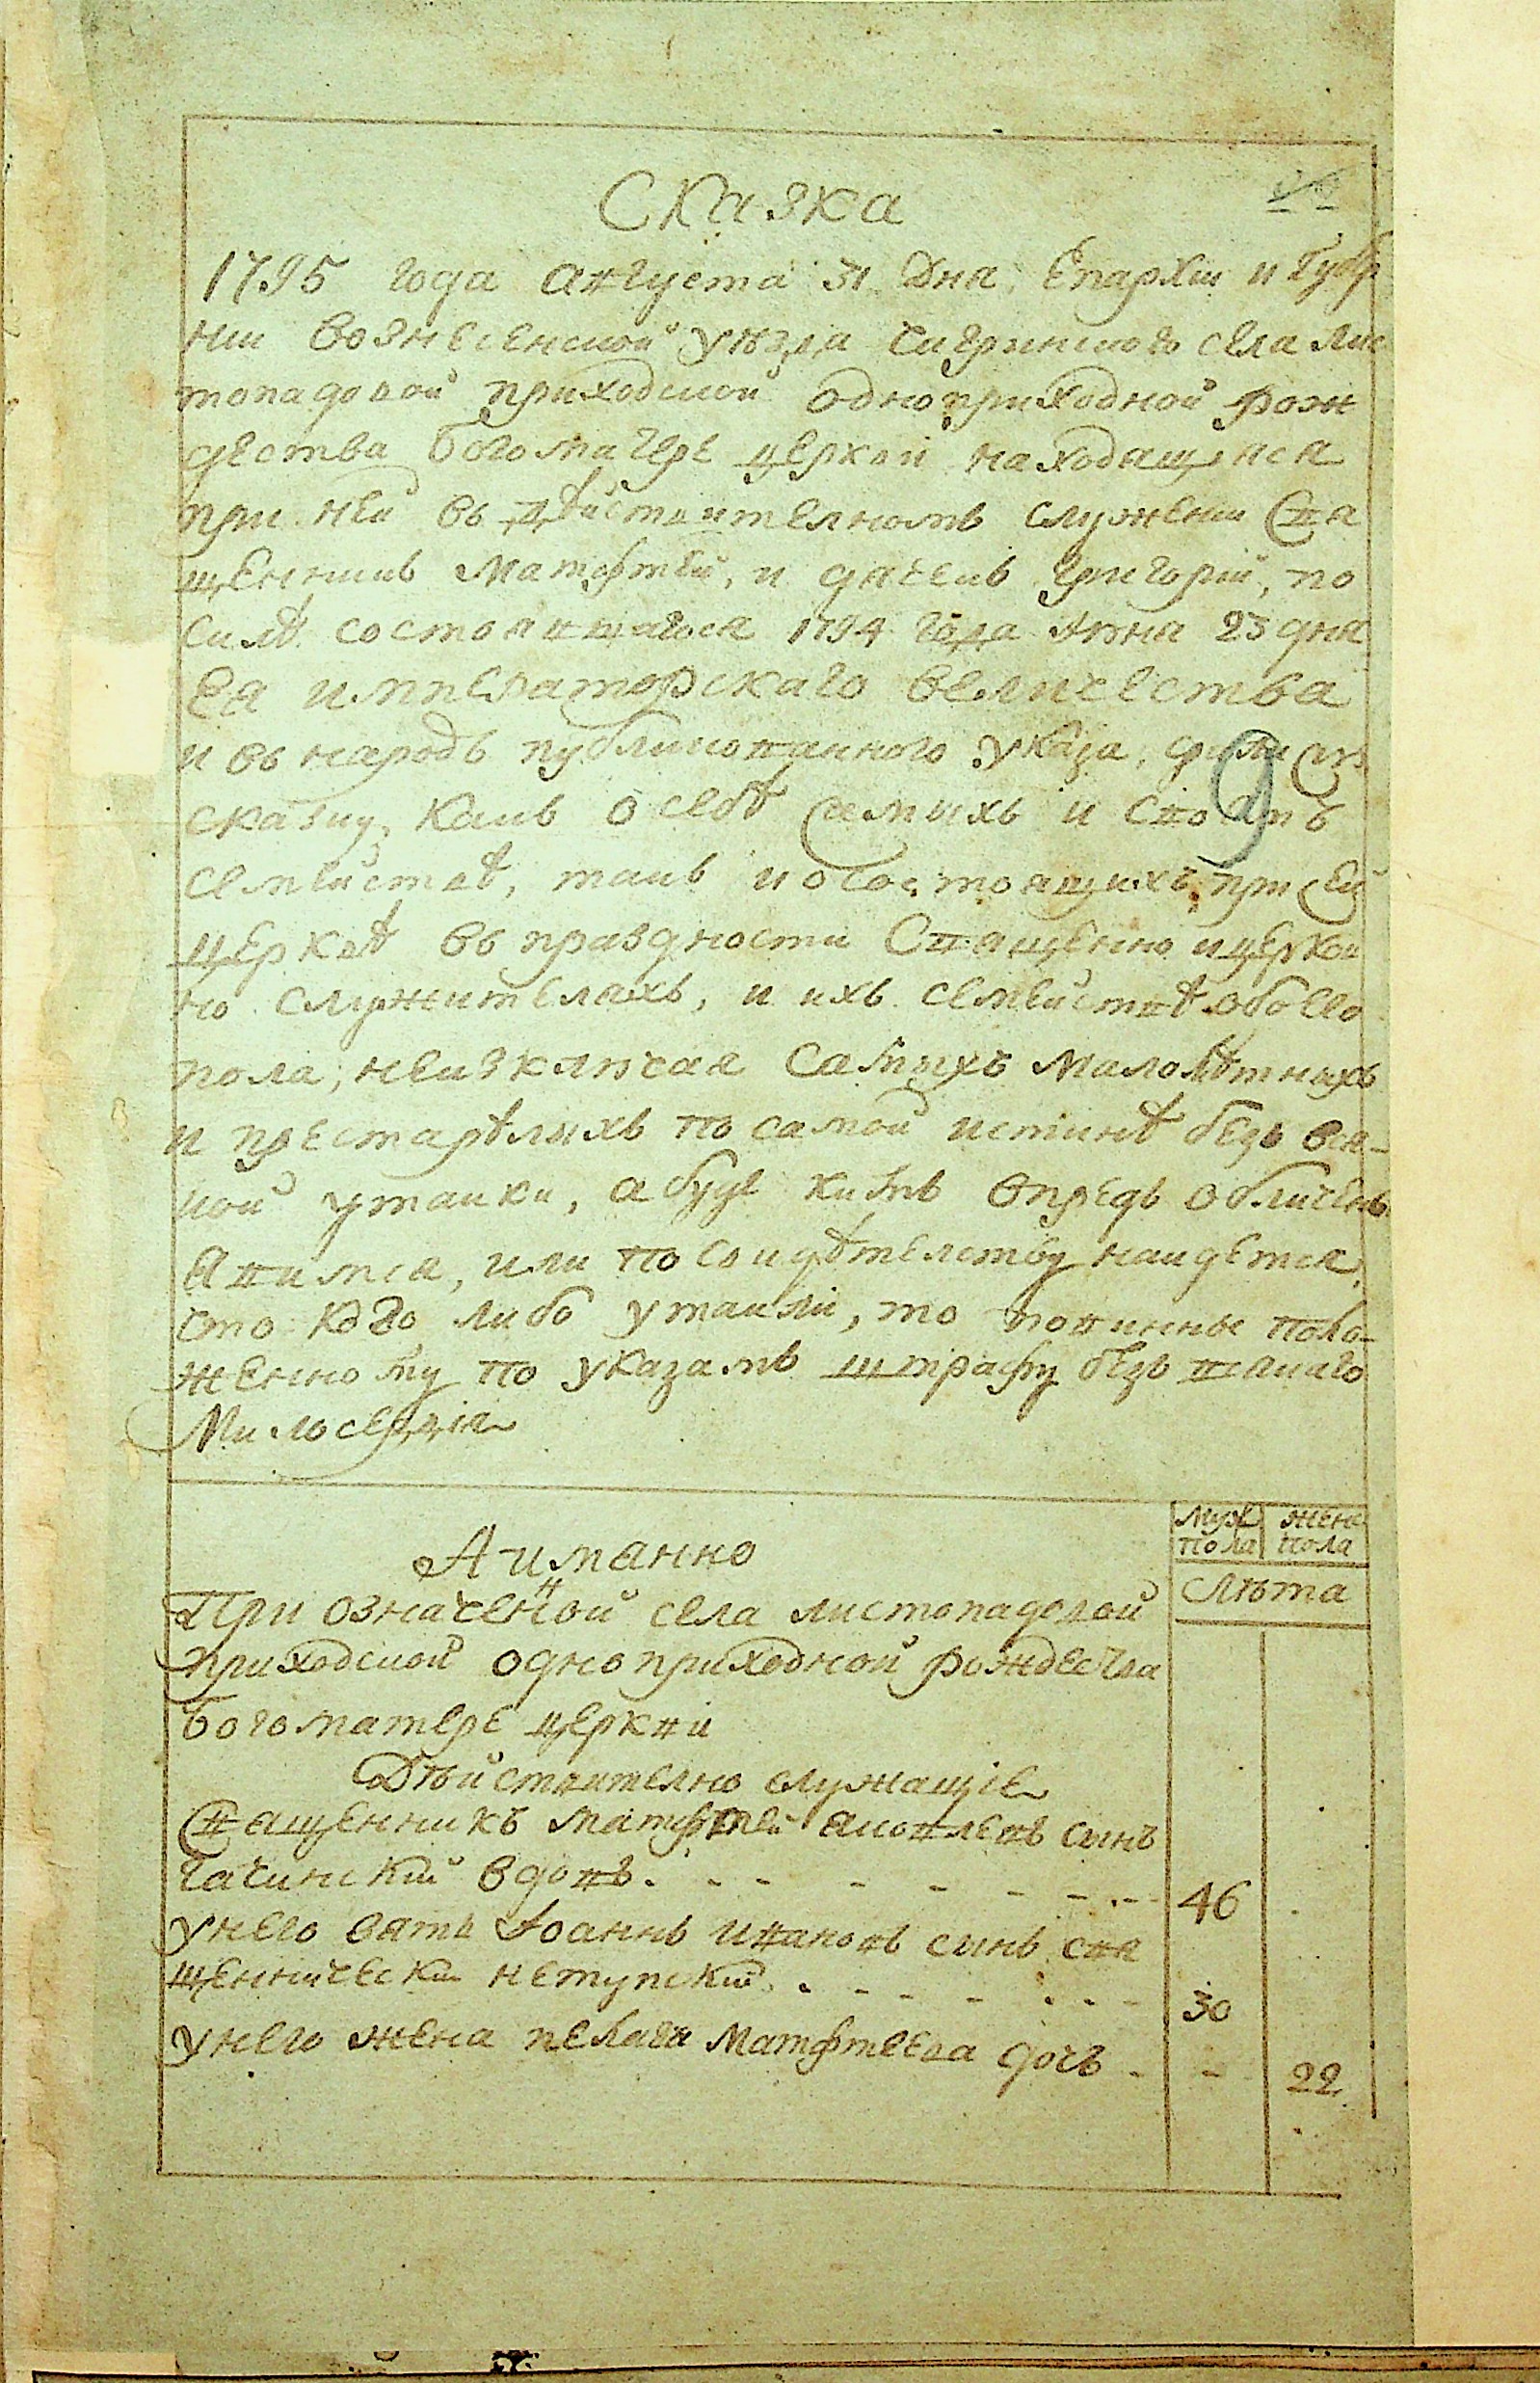 Сказка
1795 года августа 31 дня Епархии и Губер
нии вознесенской уѣзда чигринского села лис
топадовой приходской одноприходной рож
дества богоматере церкви находящиися
при ней въ дѣйствителномъ служении Свя
щенникъ Матфтей, и дячекъ григорий, по
силѣ состоявшагося 1794 года июня 23 дня
Ея императорскаго величества
и въ народъ публикованного указа, дали сию
сказку, какъ о себѣ самыхъ и своемъ
семействѣ, такъ и о состоящихъ при сей
церквѣ въ праздности Священно и церков
но служителахъ, и ихъ семействѣ обоего
пола, неизключая самыхъ малолѣтныхъ
и престарѣлыхъ по самой истинѣ безъ вся-
кой утайки, а буде кимъ впредь обличены
явимся, или по свидѣтелству найдется,
что кого либо утаили, то повинны поло-
женному по указамъ штрафу безъ всякаго
Милосердія
Муж пола
жене пола
А иманно
Слѣта
При означенной села листопадовой
приходской одноприходной рождества
богоматере церкви
Дѣйствително служащіе
Священникъ Матфтей яковлевъ сынъ
вдовъ 46
унего зять Іоаннъ ивановъ сынъ свя
щенническій 30
унего жена пелагия Матфтеева дочь 22